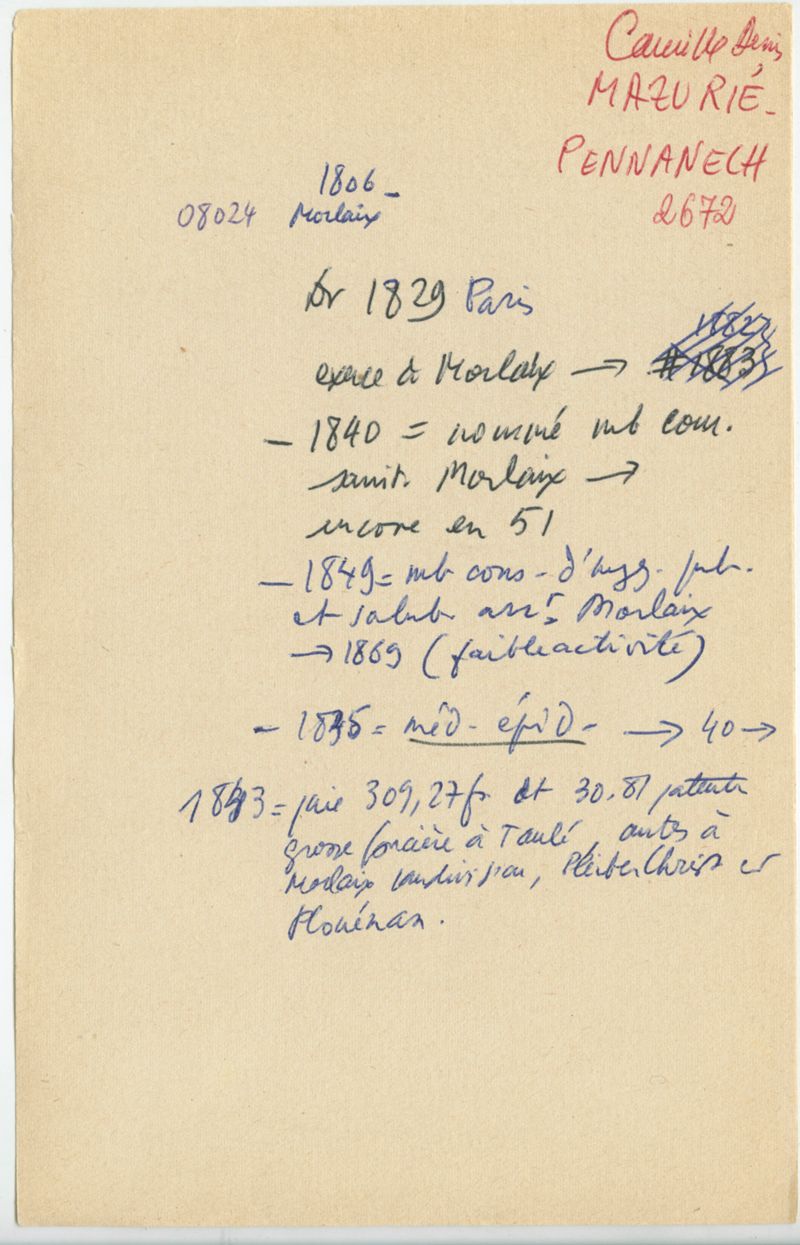 Camille Denis
MAZURIÉ-
PENNANECH
2672
1806-
08024 Morlaix
Dr 1829 Paris
exerce à Morlaix →
- 1840 = nommé mb com.
sanit. Morlaix →
encore en 51
- 1849 = mb cons. d'hyg. pub.
et salub. arrt. Morlaix
→ 1869 (faible activité)
- 1835 = méd. épid. → 40 →
1843 = paie 309,27 fr et 30.81 patente
grosse foncière à Taulé, autres à
Morlaix Landivisiau, Pleiber Christ et
Plouénan.